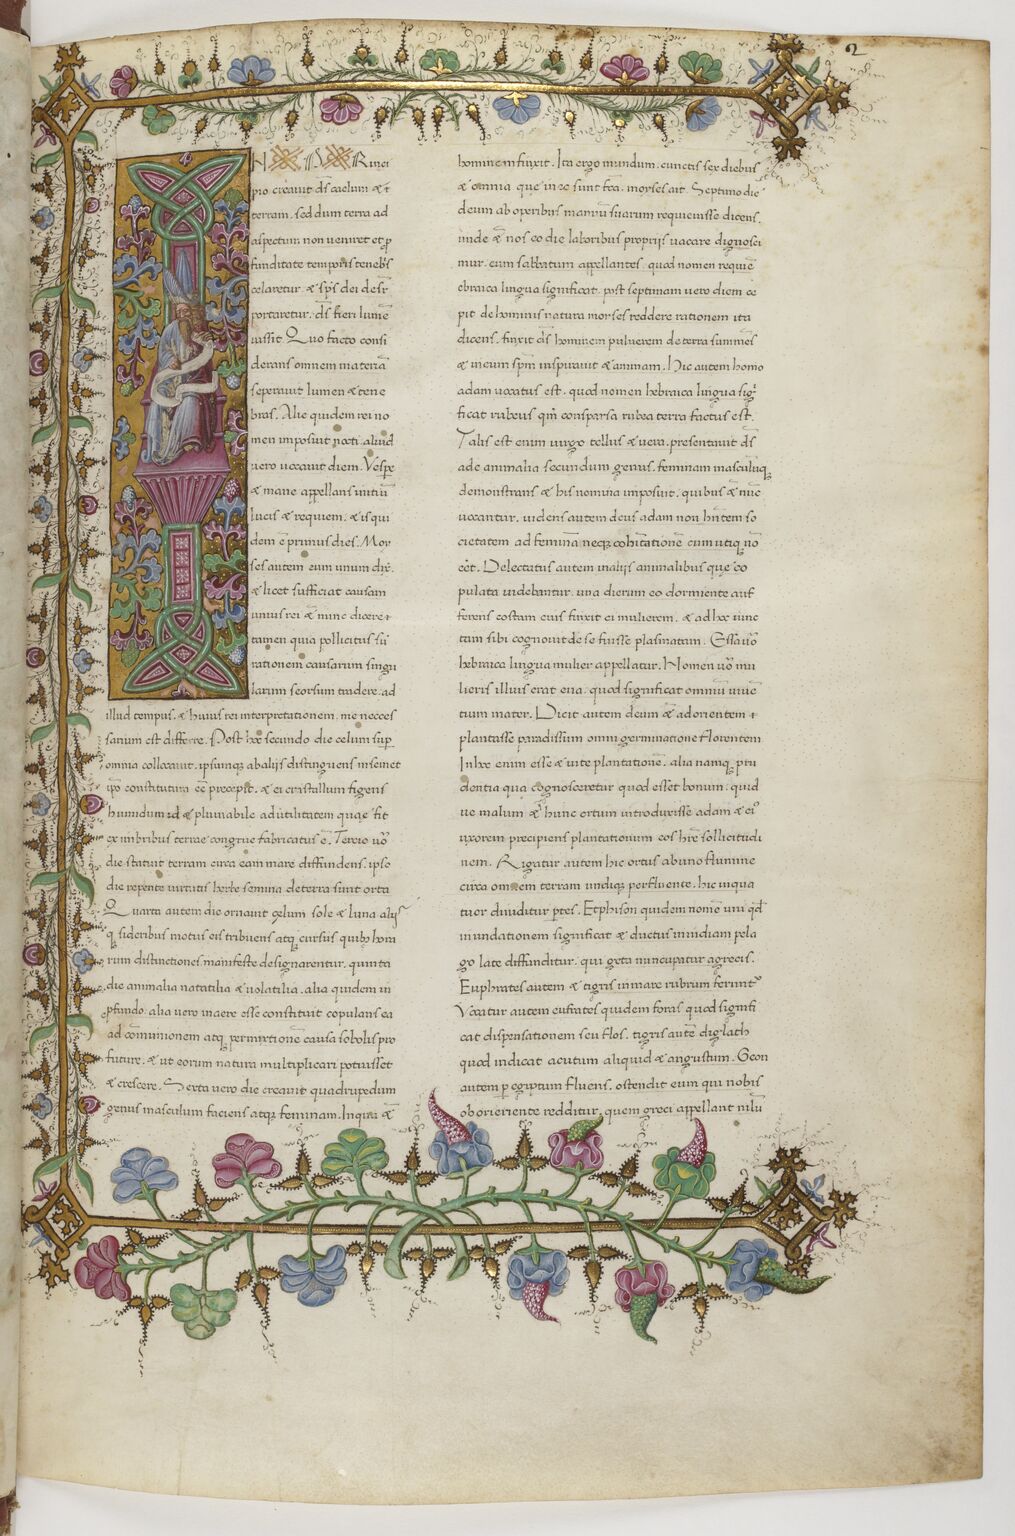 2
IN PRinci
pio creauit ds̄ caelum & t
terram. sed dum terra ad
aspectum non veniret et ꝓ
funditate temporis teneb̄s
celaretur. & sp̄s dei desr̄
portaretur. ds̄ fieri lumē
iussit. Quo facto consi
derans omnem materiā
seperauit lumen & tene
bras. Alie quidem rei no
men imposuit nocti. aliud
vero uocauit diem. Vesꝑe
& mane appellans initiū
lucis & requiem. & is qui
dem ē primus dies. Moy
ses autem eum unum dix̄.
& licet sufficiat causam
unius rei & nunc dicere t
tamen quia pollicitus sū
rationem causarum singu
larum seorsum tradere. ad
illud tempus. & huius rei interpretationem. me necces
sarium est differre. Post hæc secundo die celum suꝑ
omnia collocauit. ipsumq; ab alijs distinguens in semet
ip̄o constitutum eē precepit. & ei cristallum figens
humidum id & pluuiabile ad utilitatem quæ fit
ex imbribus terrae congrue fabricatus ē. Tercio uō
die statuit terram circa eam mare diffundens. ipso
die repente uirtutis herbe semina de terra sunt orta
Quarta autem die ornauit cęlum sole & luna alijs
q; sideribus motus eis tribuens atq; cursus quib; hora
rum distinctiones manifeste designarentur. quinta
die animalia natatilia & uolatilia. alia quidem in
ꝓfundo. alia vero in aere esse constituit copulans ea
ad cōmunionem atq; permixtionē causa sobolis pro
future. & ut eorum natura multiplicari potuisset
& crescere. Sexta vero die creauit quadrupedum
genus masculum faciens atq; feminam. In qua &
hominem finxit. Ita ergo mundum. cunctis sex diebus
& omnia que in ec sunt fc̄a. moyses ait. Septimo die
deum ab operibus manuū suarum requieuisse dicens.
unde & nos eo die laboribus proprijs uacare dignosci
mur. eum sabbatum appellantes. quod nomen requiē
ebraica lingua significat. post septimam uero diem ce
pit de hominis natura moyses reddere rationem ita
dicens. finxit ds̄ hominem puluerem de terra summēs
& in eum sp̄m inspirauit & animam. Hic autem homo
adam uocatus est. quod nomen hebraica lingua sig̅
ficat rubeus qm̄ consparsa rubea terra factus est.
Talis est enim uirgo tellus & vera. presentauit ds̄
ade animalia secundum genus. feminam masculuq;
demonstrans & his nomina imposuit. quibus & nūc
uocantur. uidens autem deus adam non hn̄tem so
cietatem ad feminā neq; cohītationē cum utiq; nō
eēt. Delectatus autem in alijs animalibus quę co
pulata uidebantur. una dierum eo dormiente auf
ferens costam eius finxit ei mulierem. & adhoc iunc
tam sibi cognouit de se fuisse plasmatam. Essa uō
hebraica lingua mulier appellatur. Nomen uō mu
lieris illius erat eua. quod significat omniū uiuē
tium mater. Dicit autem deum & ad orientem t
plantasse paradissum omni germinatione florentem
In hoc enim esse & uite plantationē. alia namq; pru
dentia qua cognosceretur quod esset bonum. quid
ue malum & hunc ortum introduxisse adam & ei'
uxorem precipiens plantationum eos hr̄e sollicitudi
nem. Rigatur autem hic ortus ab uno flumine
circa omnem terram undiq; perfluente. hic in qua
tuor diuiditur ꝑtes. Et phison quidem nomē uni qd̄
inundationem significat & ductus in indiam pela
go late diffunditur. qui geta nuncupatur a grecis.
Euphrates autem & tigris in mare rubrum feruntᷣ
Vocatur autem eufrates quidem foras quod signifi
cat dispensationem seu flos. tigris autē diglath
quod indicat acutum aliquid & angustum. Geon
autem ꝑ egiptum fluens. ostendit eum qui nobis
ob orieriente redditur. quem greci appellant nilū